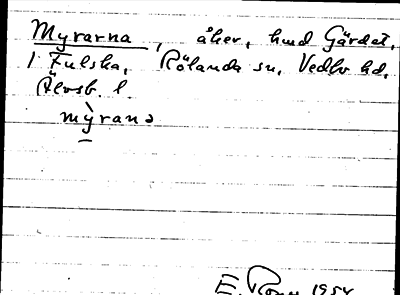 Myrarna, åker, hmd Gärdet,
1 Fulska, Rölanda sn, Vedbo hd,
Älvsb. l.
mỳrana
E. 1954